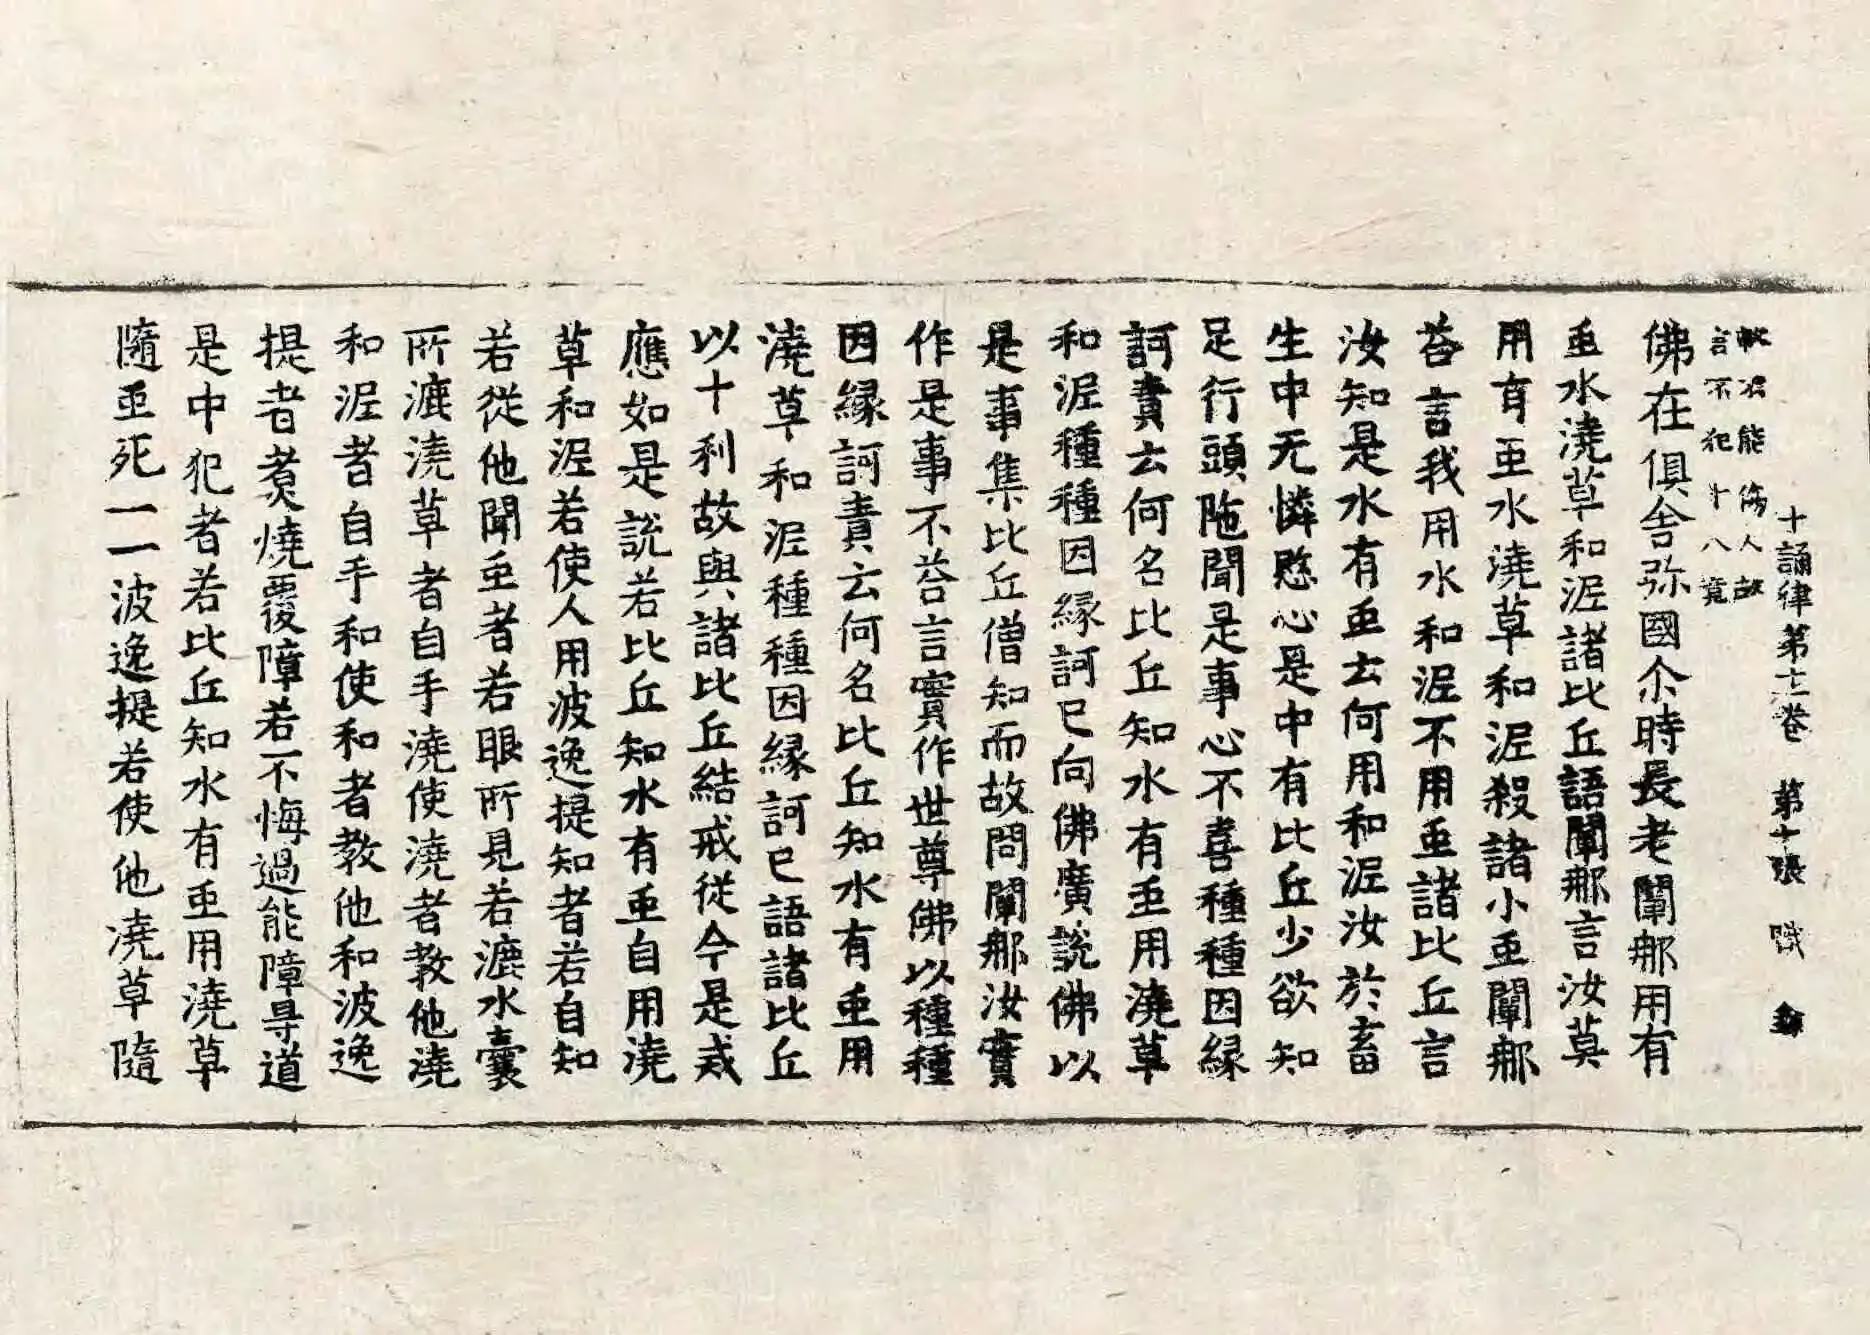 十誦律第十二卷 第十張 職
軟浪能傷人故
言不犯十八竟
佛在俱舍弥國尒時長老闡那用有
䖝水澆草和泥諸比丘語闡那言汝莫
用有䖝水澆草和泥殺諸小䖝闡那
荅言我用水和泥不用䖝諸比丘言
汝知是水有䖝云何用和泥汝於畜
生中无憐愍心是中有比丘少欲知
足行頭陁聞是事心不喜種種因縁
訶責云何名比丘知水有䖝用澆草
和泥種種因縁訶已向佛廣說佛以
是事集比丘僧知而故問闡那汝實
作是事不荅言實作世尊佛以種種
因縁訶責云何名比丘知水有䖝用
澆草和泥種種因縁訶已語諸比丘
以十利故與諸比丘結戒從今是戒
應如是說若比丘知水有䖝自用澆
草和泥若使人用波逸提知者若自知
若從他聞䖝者若眼所見若漉水囊
所漉澆草者自手澆使澆者教他澆
和泥者自手和使和者教他和波逸
提者煑燒覆障若不悔過能障㝵道
是中犯者若比丘知水有䖝用澆草
隨䖝死一一波逸提若使他澆草隨